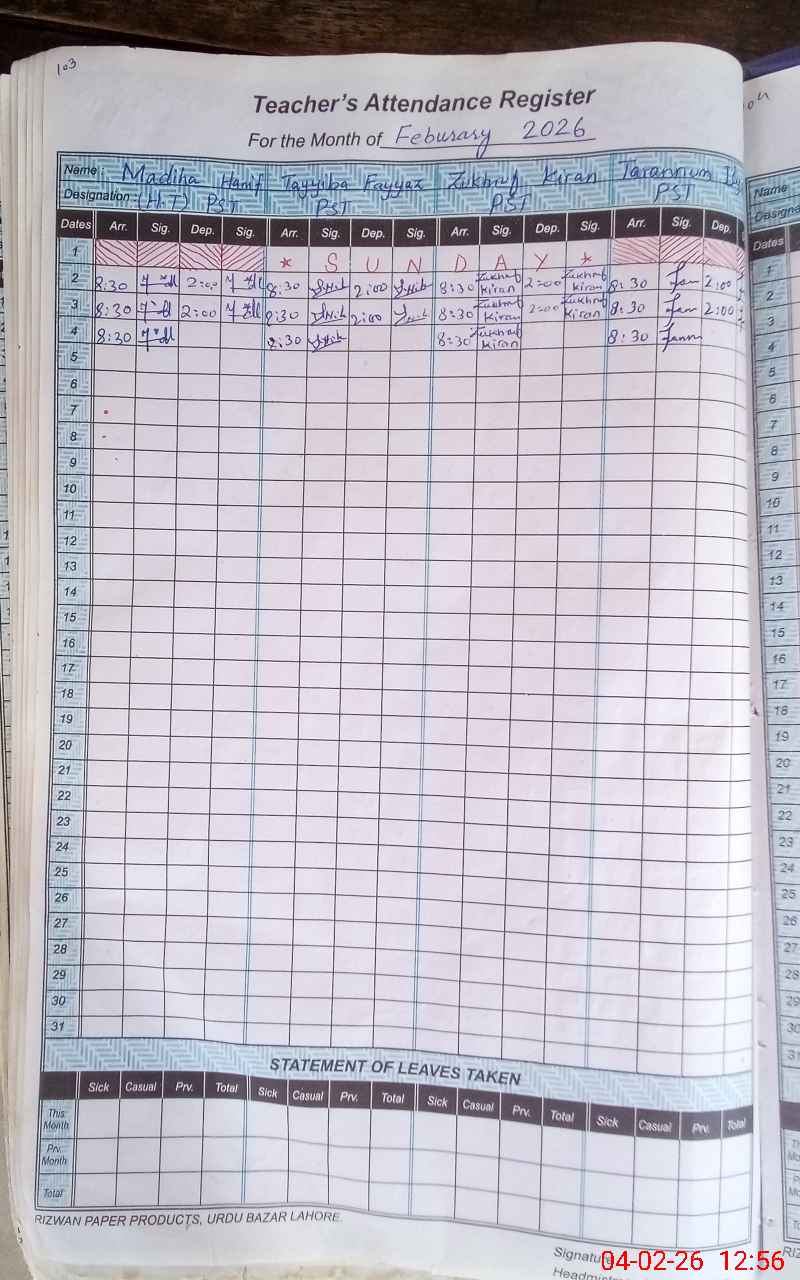 103
Teacher's Attendance Register
For the Month of Feburary 2026
Name: Madiha Hanif Tayyiba Fayyaz Zukhruf Kiran Tarannum
Designation (H.T) PST PST PST PST
Dates Arr. Sig. Dep. Sig. Arr. Sig. Dep. Sig. Arr. Sig. Dep. Sig. Arr. Sig. Dep.
1 * S U N D A Y *
2 8:30 2:00 8:30 2:00 8:30 Zukhruf Kiran 2:00 Zukhruf Kiran 8:30 2:00
3 8:30 2:00 8:30 2:00 8:30 Zukhruf Kiran 2:00 Zukhruf Kiran 8:30 2:00
4 8:30 8:30 8:30 Zukhruf Kiran 8:30
5
6
7
8
9
10
11
12
13
14
15
16
17
18
19
20
21
22
23
24
25
26
27
28
29
30
31
STATEMENT OF LEAVES TAKEN
Sick Casual Prv. Total Sick Casual Prv. Total Sick Casual Prv. Total Sick Casual Prv. Total
This Month
Prv. Month
Total
RIZWAN PAPER PRODUCTS, URDU BAZAR LAHORE.
Signature
04-02-26 12:56
Name
Dates
1
2
3
4
5
6
7
8
9
10
11
12
13
14
15
16
17
18
19
20
21
22
23
24
25
26
27
28
29
30
31